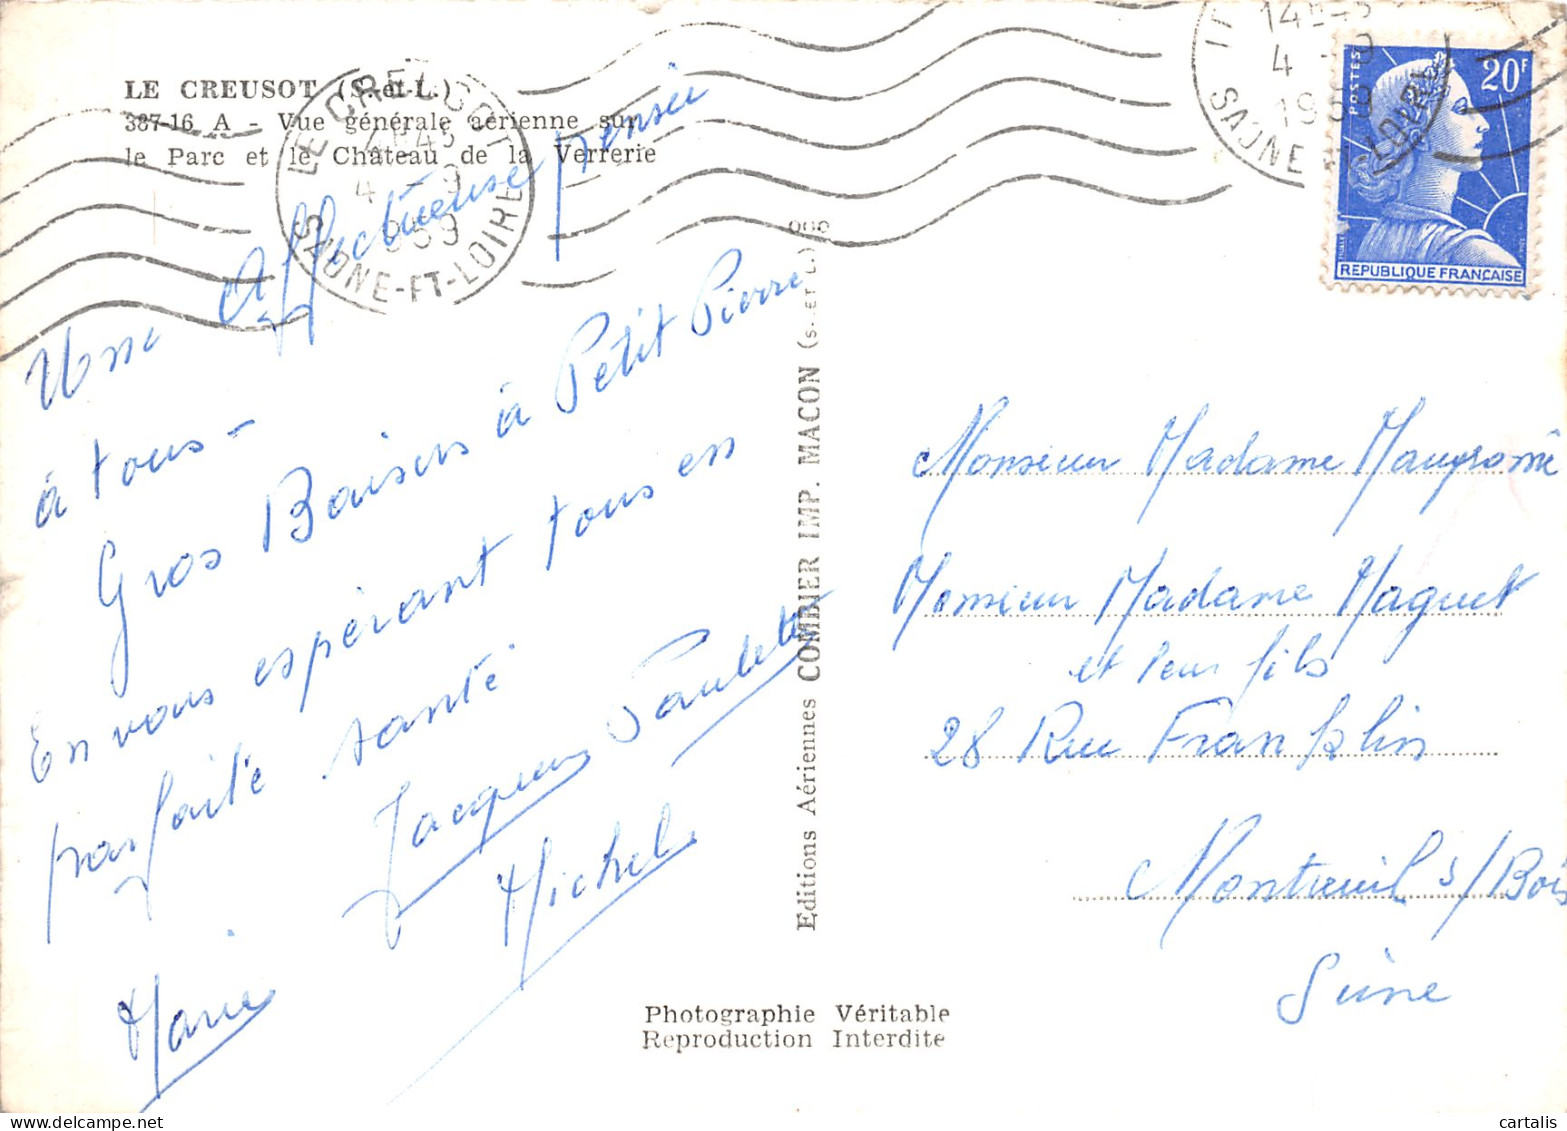 LE CREUSOT (S.-et-L.)
387-16 A - Vue générale aérienne sur
le Parc et le Château de la Verrerie
LE CREUSOT
4 - 9
1959
SAONE-ET-LOIRE
4 - 9
1959
SAONE LOIRE
POSTES
20F
REPUBLIQUE FRANÇAISE
Une affectueuse pensée
à tous -
Gros Baisers à Petit Pierre
En vous espérant tous en
parfaite santé
Jacques Paulette
Michel
Marie
Editions Aériennes COMBIER IMP. MACON (S.-ET-L.)
Monsieur Madame
Monsieur Madame Maquet
et leur fils
28 Rue Franklin
Montreuil s/Bois
Seine
Photographie Véritable
Reproduction Interdite
cartalis
www.delcampe.net